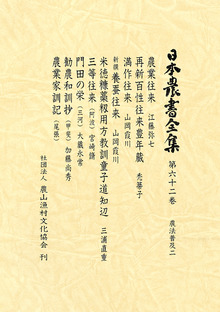 日本農書全集 第六十二巻 農法普及二
農業往来 江藤弥七
再新百性往来豊年蔵 禿箒子
満作往来 山岡霞川
新撰養蚕往来 山岡霞川
米徳糠藁籾用方教訓童子道知辺 三浦直重
三等往来（阿波）宮崎
門田の栄（三河）大蔵永常
勧農和訓抄（甲斐）加藤尚秀
農業家訓記（尾張）
社団法人 農山漁村文化協会 刊